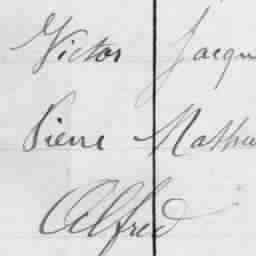 Victor Jacqu
Pierre Mathu
Alfred